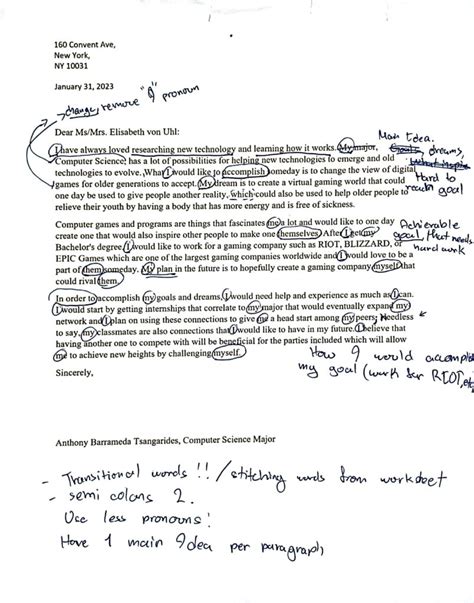 160 Convent Ave,
New York,
NY 10031
January 31, 2023
change, remove "I" pronoun
Dear Ms/Mrs. Elisabeth von Uhl:
I have always loved researching new technology and learning how it works. My major,
Computer Science, has a lot of possibilities for helping new technologies to emerge and old
technologies to evolve. What I would like to accomplish someday is to change the view of digital
games for older generations to accept. My dream is to create a virtual gaming world that could
one day be used to give people another reality, which could also be used to help older people to
relieve their youth by having a body that has more energy and is free of sickness.
Main Idea.
Goals, dreams,
Hard to
reach goal
Computer games and programs are things that fascinates me a lot and would like to one day
create one that would also inspire other people to make one themselves. After I get my
Bachelor's degree, I would like to work for a gaming company such as RIOT, BLIZZARD, or
EPIC Games which are one of the largest gaming companies worldwide and I would love to be a
part of them someday. My plan in the future is to hopefully create a gaming company myself that
could rival them.
Achievable
goal, that needs
hard work
In order to accomplish my goals and dreams, I would need help and experience as much as I can.
I would start by getting internships that correlate to my major that would eventually expand my
network and I plan on using these connections to give me a head start among my peers. Needless
to say, my classmates are also connections that I would like to have in my future. I believe that
having another one to compete with will be beneficial for the parties included which will allow
me to achieve new heights by challenging myself.
How I would accomplish
my goal (work for RIOT, etc
Sincerely,
Anthony Barrameda Tsangarides, Computer Science Major
- Transitional words !! / stitching words from worksheet
- semi colons 2.
Use less pronouns!
Have 1 main Idea per paragraph